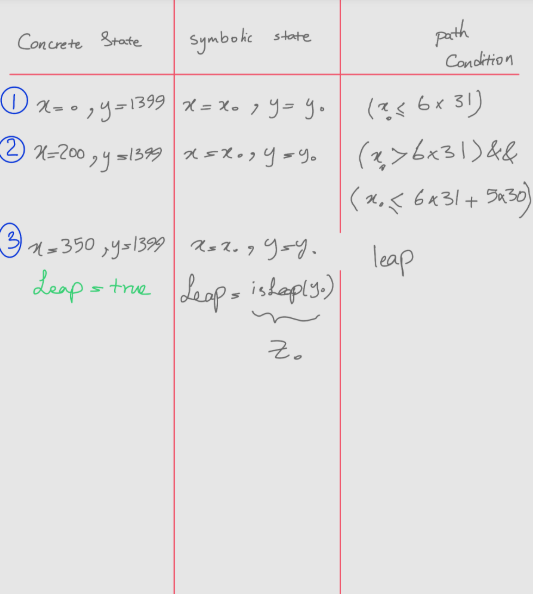 Concrete State symbolic state path Condition
① x = 0 , y = 1399 x = x₀ , y = y₀ (x₀ ≤ 6 x 31)
② x = 200 , y = 1399 x = x₀ , y = y₀ (x₀ > 6 x 31) &&
(x₀ ≤ 6 x 31 + 5 x 30)
③ x = 350 , y = 1399 x = x₀ , y = y₀ leap
Leap = true Leap = isLeap(y₀)
Z₀